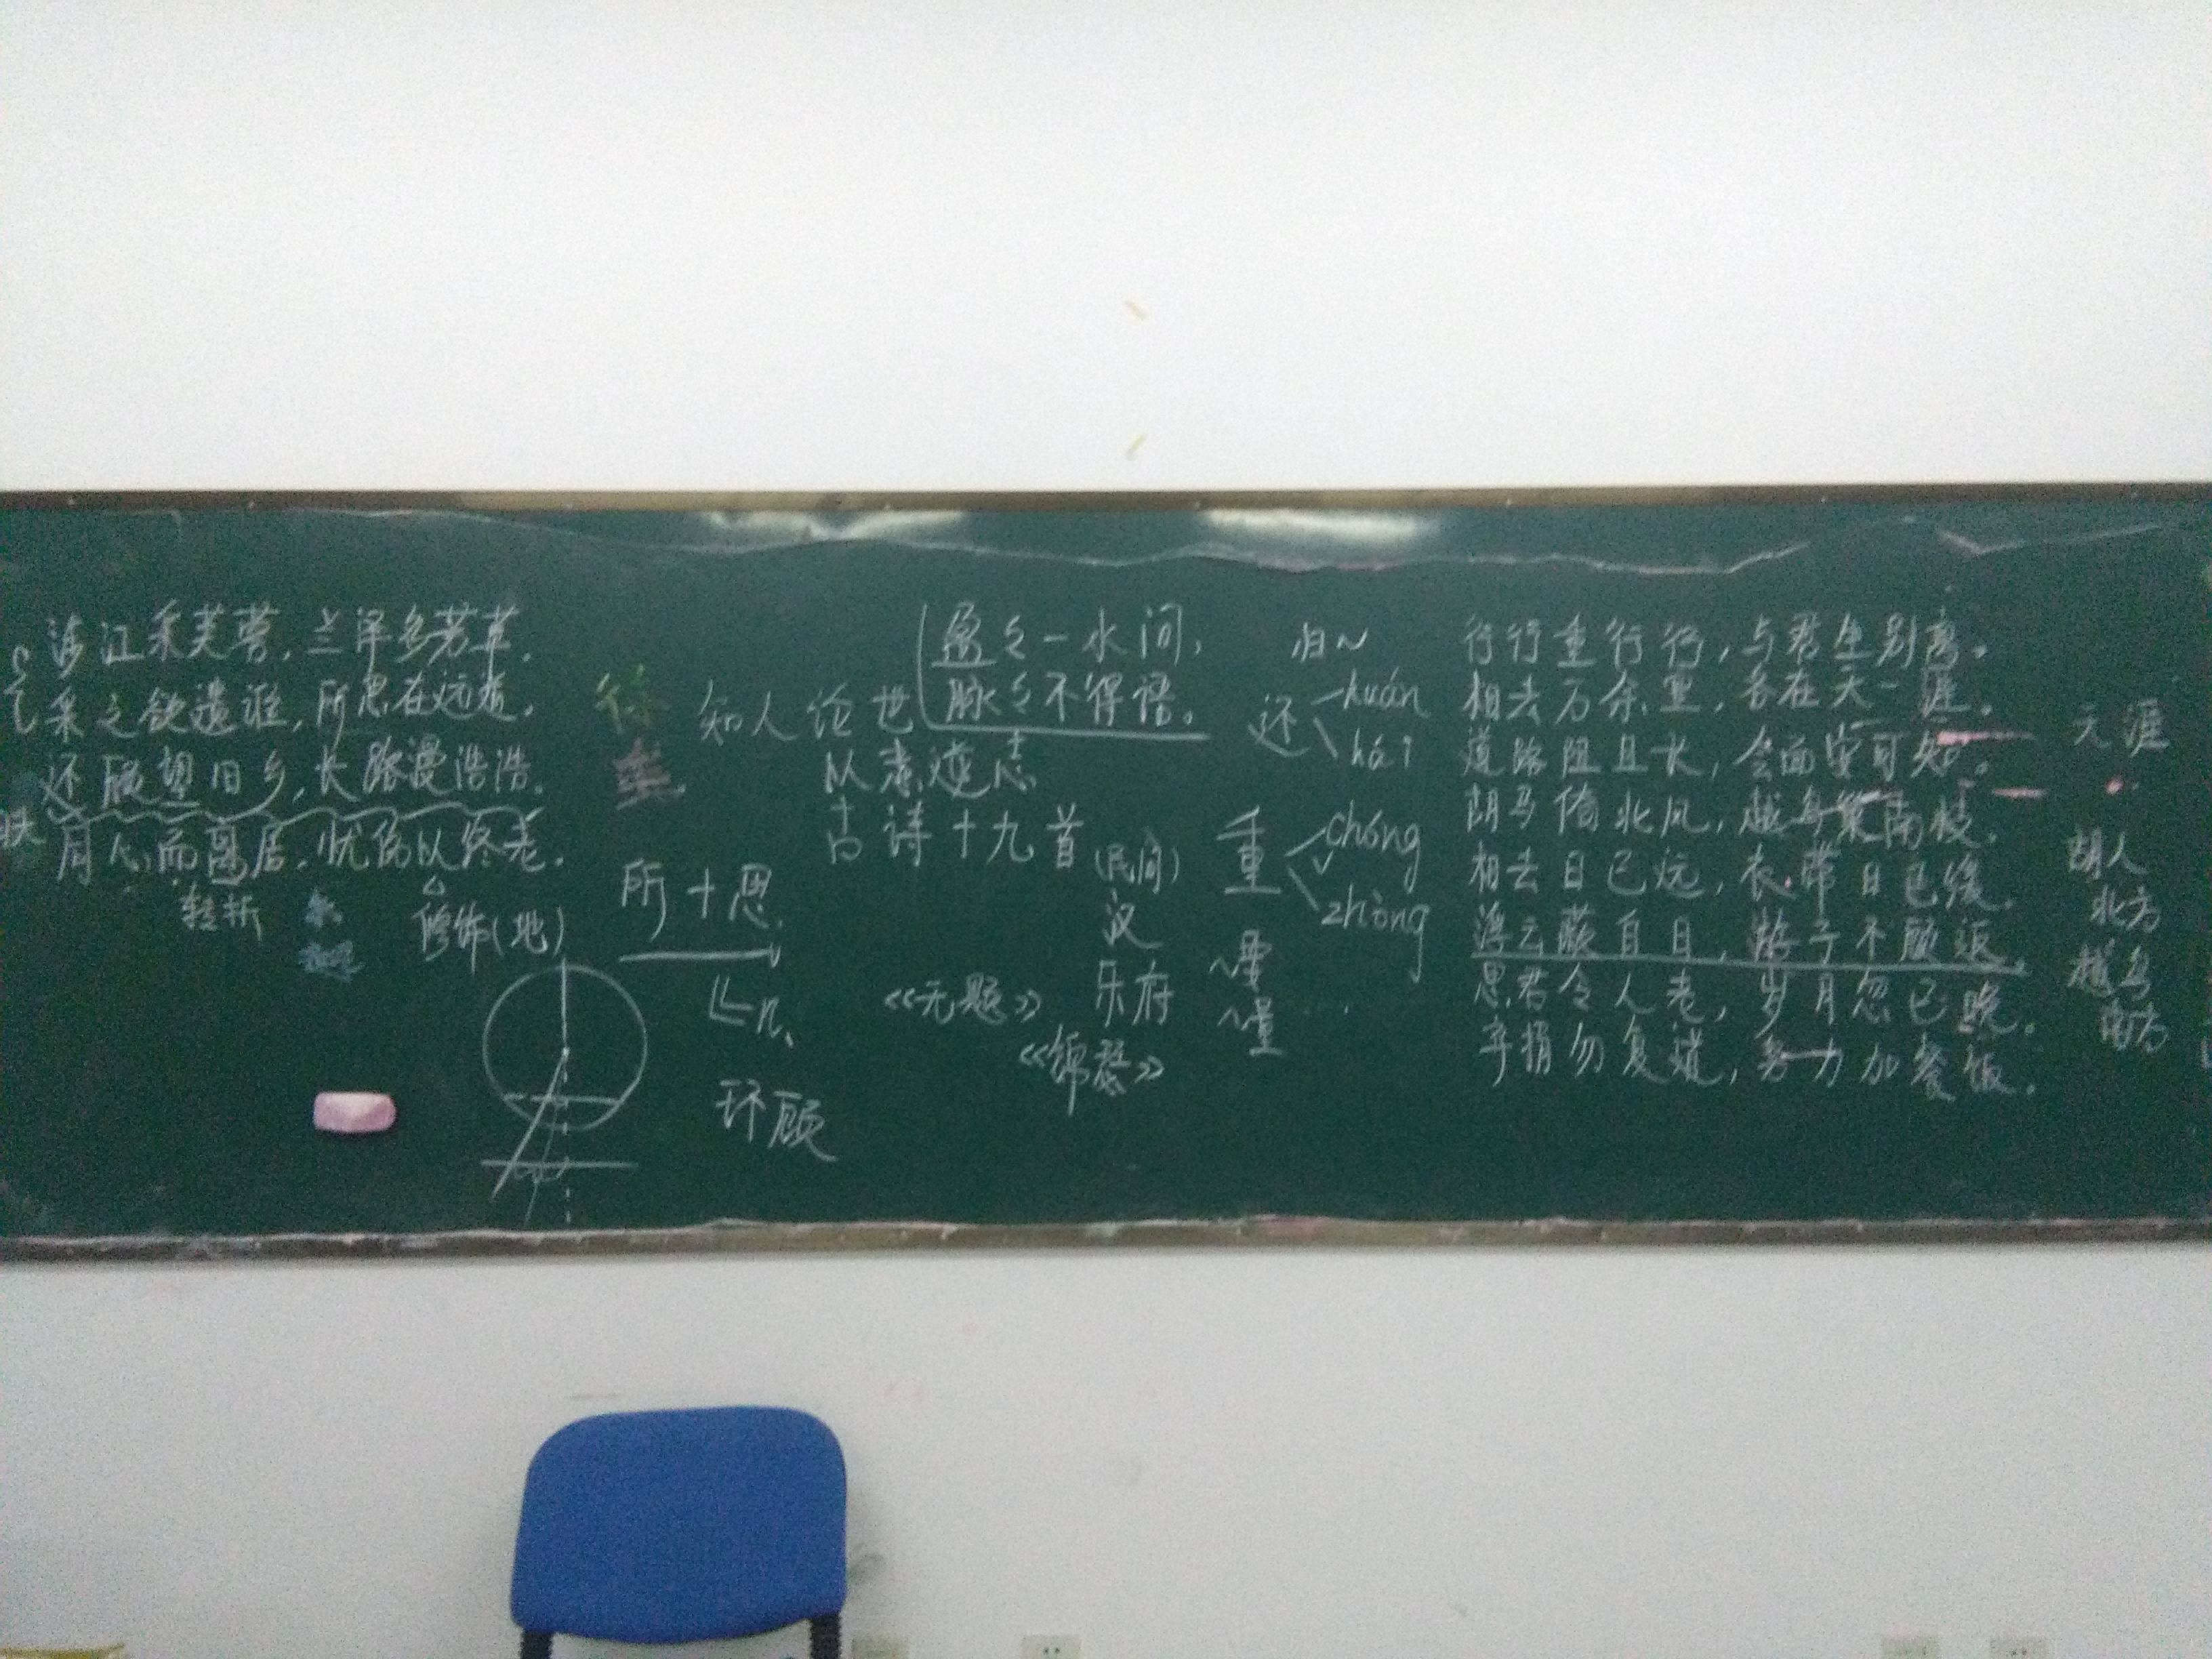 涉江采芙蓉，兰泽多芳草。
采之欲遗谁，所思在远道。
还顾望旧乡，长路漫浩浩。
同心而离居，忧伤以终老。
转折
修饰(地)
所+思
环顾
知人论世
盈々一水间，
脉々不得语。
以意逆志
古诗十九首
(民间)
汉
乐府
《无题》
《锦瑟》
归~
还
huán
hái
重
chóng
zhòng
~要
~量
行行重行行，与君生别离。
相去万余里，各在天一涯。
道路阻且长，会面安可知。
胡马倚北风，越鸟巢南枝。
相去日已远，衣带日已缓。
浮云蔽白日，游子不顾返。
思君令人老，岁月忽已晚。
弃捐勿复道，努力加餐饭。
天涯
胡人
北方
越鸟
南方